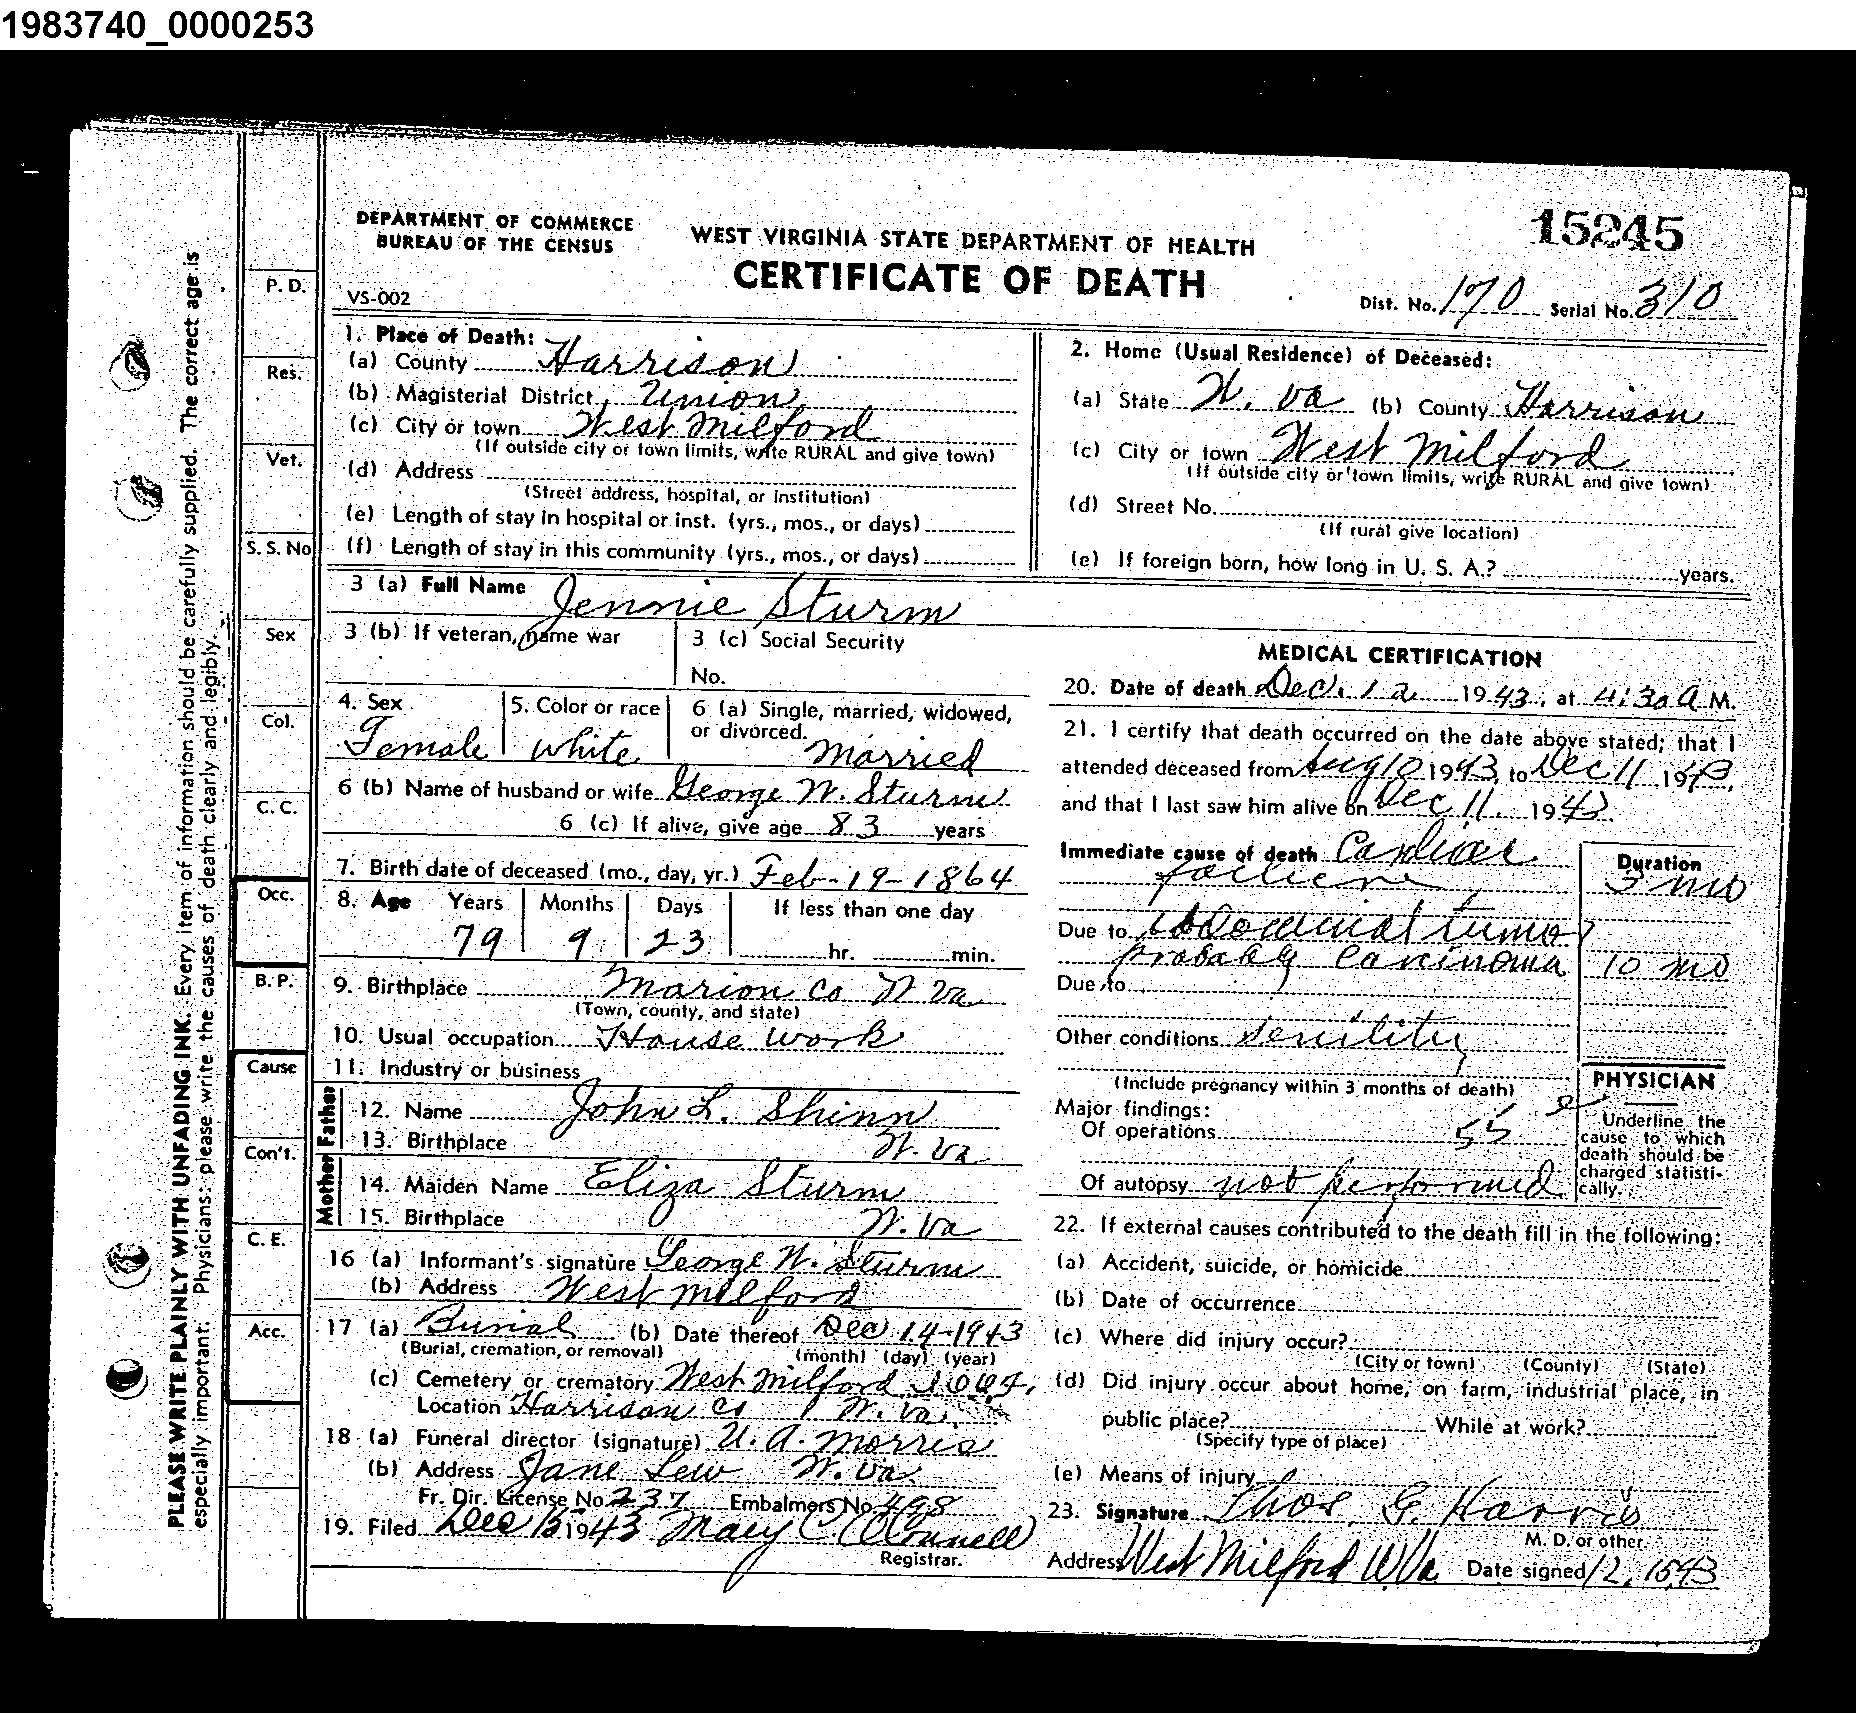 1983740_0000253
15245
DEPARTMENT OF COMMERCE
BUREAU OF THE CENSUS
WEST VIRGINIA STATE DEPARTMENT OF HEALTH
CERTIFICATE OF DEATH
VS-002
Dist. No. 170 Serial No. 310
1. Place of Death:
(a) County Harrison
(b) Magisterial District Union
(c) City or town West Milford
(If outside city or town limits, write RURAL and give town)
(d) Address
(Street address, hospital, or institution)
(e) Length of stay in hospital or inst. (yrs., mos., or days)
(f) Length of stay in this community (yrs., mos., or days)
2. Home (Usual Residence) of Deceased:
(a) State W. Va (b) County Harrison
(c) City or town West Milford
(If outside city or town limits, write RURAL and give town)
(d) Street No.
(If rural give location)
(e) If foreign born, how long in U. S. A.? years.
3 (a) Full Name Jennie Sturm
3 (b) If veteran, name war
3 (c) Social Security
No.
4. Sex Female
5. Color or race white
6 (a) Single, married, widowed,
or divorced. Married
6 (b) Name of husband or wife George W. Sturm
6 (c) If alive, give age 83 years
7. Birth date of deceased (mo., day, yr.) Feb-19-1864
8. Age Years Months Days If less than one day
79 9 23 hr. min.
9. Birthplace Marion Co W Va
(Town, county, and state)
10. Usual occupation House work
11. Industry or business
Father
12. Name John L. Shinn
13. Birthplace W. Va
Mother
14. Maiden Name Eliza Sturm
15. Birthplace W. Va
16 (a) Informant's signature George W. Sturm
(b) Address West Milford
17 (a) Burial (b) Date thereof Dec 14-1943
(Burial, cremation, or removal) (month) (day) (year)
(c) Cemetery or crematory West Milford
Location Harrison Co W. Va.
18 (a) Funeral director (signature) U. A. Morris
(b) Address Jane Lew W. Va
Fr. Dir. License No 237 Embalmers No 498
19. Filed Dec 1943 Mary C O'Connell
Registrar.
MEDICAL CERTIFICATION
20. Date of death Dec. 12 1943, at 4:30 A M.
21. I certify that death occurred on the date above stated; that I
attended deceased from Aug 10 1943, to Dec 11 1943,
and that I last saw him alive on Dec 11. 1943.
Immediate cause of death Cardiac
failure
Duration
3 mo
Due to abdominal tumor
probably carcinoma 10 mo
Due to
Other conditions Senility
(Include pregnancy within 3 months of death)
Major findings:
Of operations 55
Of autopsy not performed
PHYSICIAN
Underline the
cause to which
death should be
charged statisti-
cally.
22. If external causes contributed to the death fill in the following:
(a) Accident, suicide, or homicide
(b) Date of occurrence
(c) Where did injury occur?
(City or town) (County) (State)
(d) Did injury occur about home, on farm, industrial place, in
public place? While at work?
(Specify type of place)
(e) Means of injury
23. Signature Thos. G. Harris
M. D. or other
Address West Milford W. Va. Date signed 12, 1943
P. D.
Res.
Vet.
S. S. No
Sex
Col.
C. C.
Occ.
B. P.
Cause
Con't.
C. E.
Acc.
PLEASE WRITE PLAINLY WITH UNFADING INK. Every item of information should be carefully supplied. The correct age is
especially important. Physicians: please write the causes of death clearly and legibly.